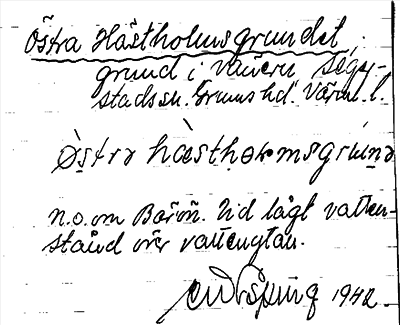 Östra Hästholmsgrundet,
grund i Vänern Segerstadssn. Grums hd. Värml. l.
Östra hæsthormsgrund
n.o. om Barön. Vid lågt vattenstånd över vattenytan.
1942.